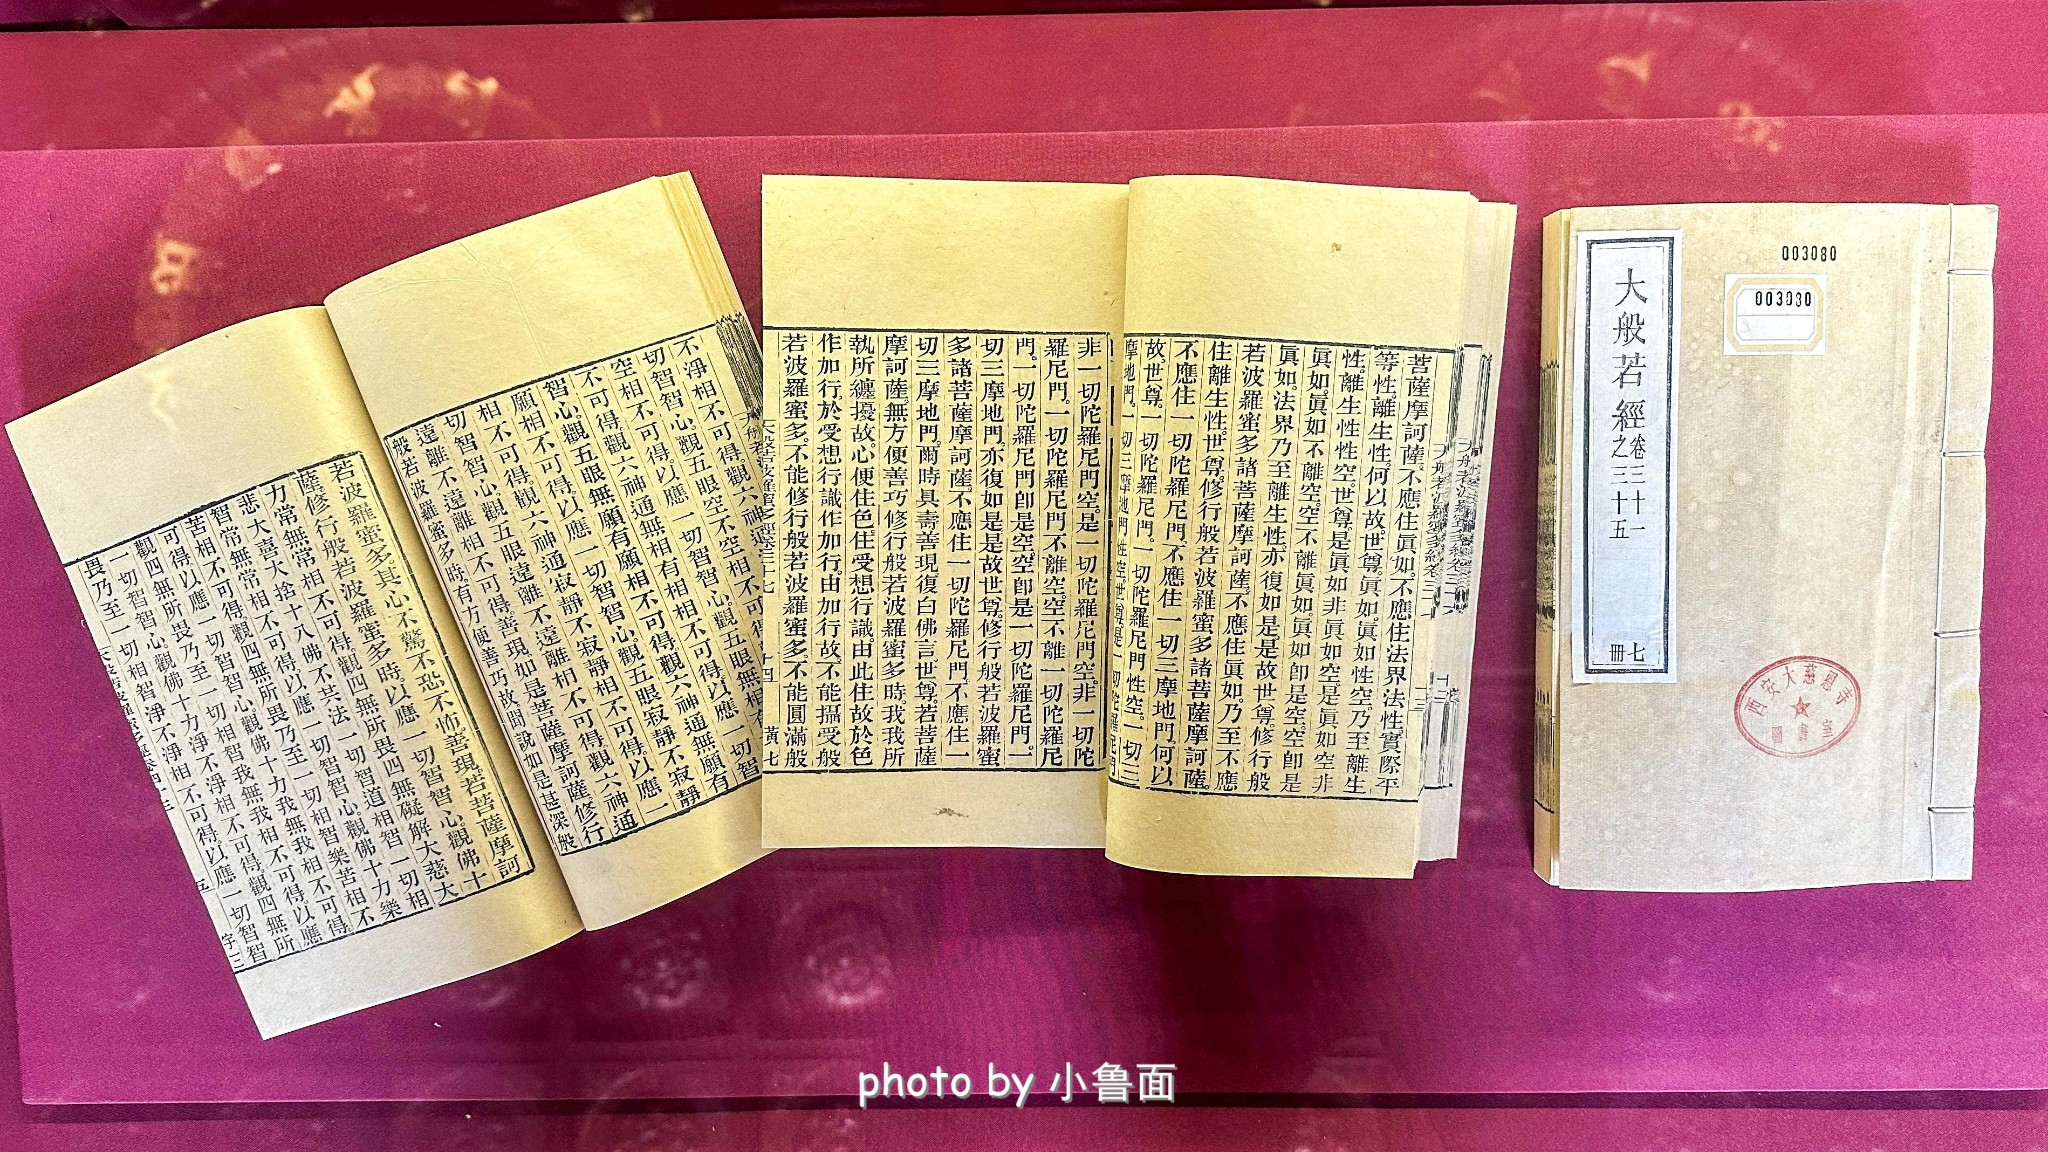 大般若經卷三十一
之三十五
七册
003080
003080
西安大慈恩寺
圖書室
菩薩摩訶薩。不應住眞如。不應住法界法性實際平
等性。離生性。何以故。世尊。眞如。眞如性空。乃至離生
性。離生性性空。世尊。是眞如非眞如空。是眞如空非
眞如。眞如不離空。空不離眞如。眞如卽是空。空卽是
眞如。法界乃至離生性。亦復如是。是故世尊。修行般
若波羅蜜多諸菩薩摩訶薩。不應住眞如。乃至不應
住離生性。世尊。修行般若波羅蜜多諸菩薩摩訶薩。
不應住一切陀羅尼門。不應住一切三摩地門。何以
故。世尊。一切陀羅尼門。一切陀羅尼門性空。一切三
摩地門。一切三摩地門性空。世尊。是一切陀羅尼門
非一切陀羅尼門空。是一切陀羅尼門空。非一切陀
羅尼門。一切陀羅尼門不離空。空不離一切陀羅尼
門。一切陀羅尼門卽是空。空卽是一切陀羅尼門。一
切三摩地門。亦復如是。是故世尊。修行般若波羅蜜
多諸菩薩摩訶薩。不應住一切陀羅尼門。不應住一
切三摩地門。爾時具壽善現復白佛言。世尊。若菩薩
摩訶薩。無方便善巧修行般若波羅蜜多時。我我所
執所纏擾故。心便住色。住受想行識。由此住故。於色
作加行。於受想行識作加行。由加行故。不能攝受般
若波羅蜜多。不能修行般若波羅蜜多。不能圓滿般
十四 黃七
不淨相不可得。觀六神
切智智心。觀五眼空不空相不可得
空相不可得。以應一切智智心。觀五眼無相有
不可得。觀六神通無相有相相不可得。以應一切智
智心。觀五眼無願有願相不可得。觀六神通無願有
願相不可得。以應一切智智心。觀五眼寂靜不寂靜
相不可得。觀六神通寂靜不寂靜相不可得。以應一
切智智心。觀五眼遠離不遠離相不可得。觀六神通
遠離不遠離相不可得。善現。如是菩薩摩訶薩修行
般若波羅蜜多時。有方便善巧故。聞說如是甚深般
若波羅蜜多。其心不驚不恐不怖。善現。若菩薩摩訶
薩修行般若波羅蜜多時。以應一切智智心。觀佛十
力常無常相不可得。觀四無所畏四無礙解大慈大
悲大喜大捨十八佛不共法一切智道相智一切相
智常無常相不可得。以應一切智智心。觀佛十力樂
苦相不可得。觀四無所畏乃至一切相智樂苦相不
可得。以應一切智智心。觀佛十力我無我相不可得。
觀四無所畏乃至一切相智我無我相不可得。以應
一切智智心。觀佛十力淨不淨相不可得。觀四無所
畏乃至一切相智淨不淨相不可得。以應一切智智
字三
photo by 小鲁面